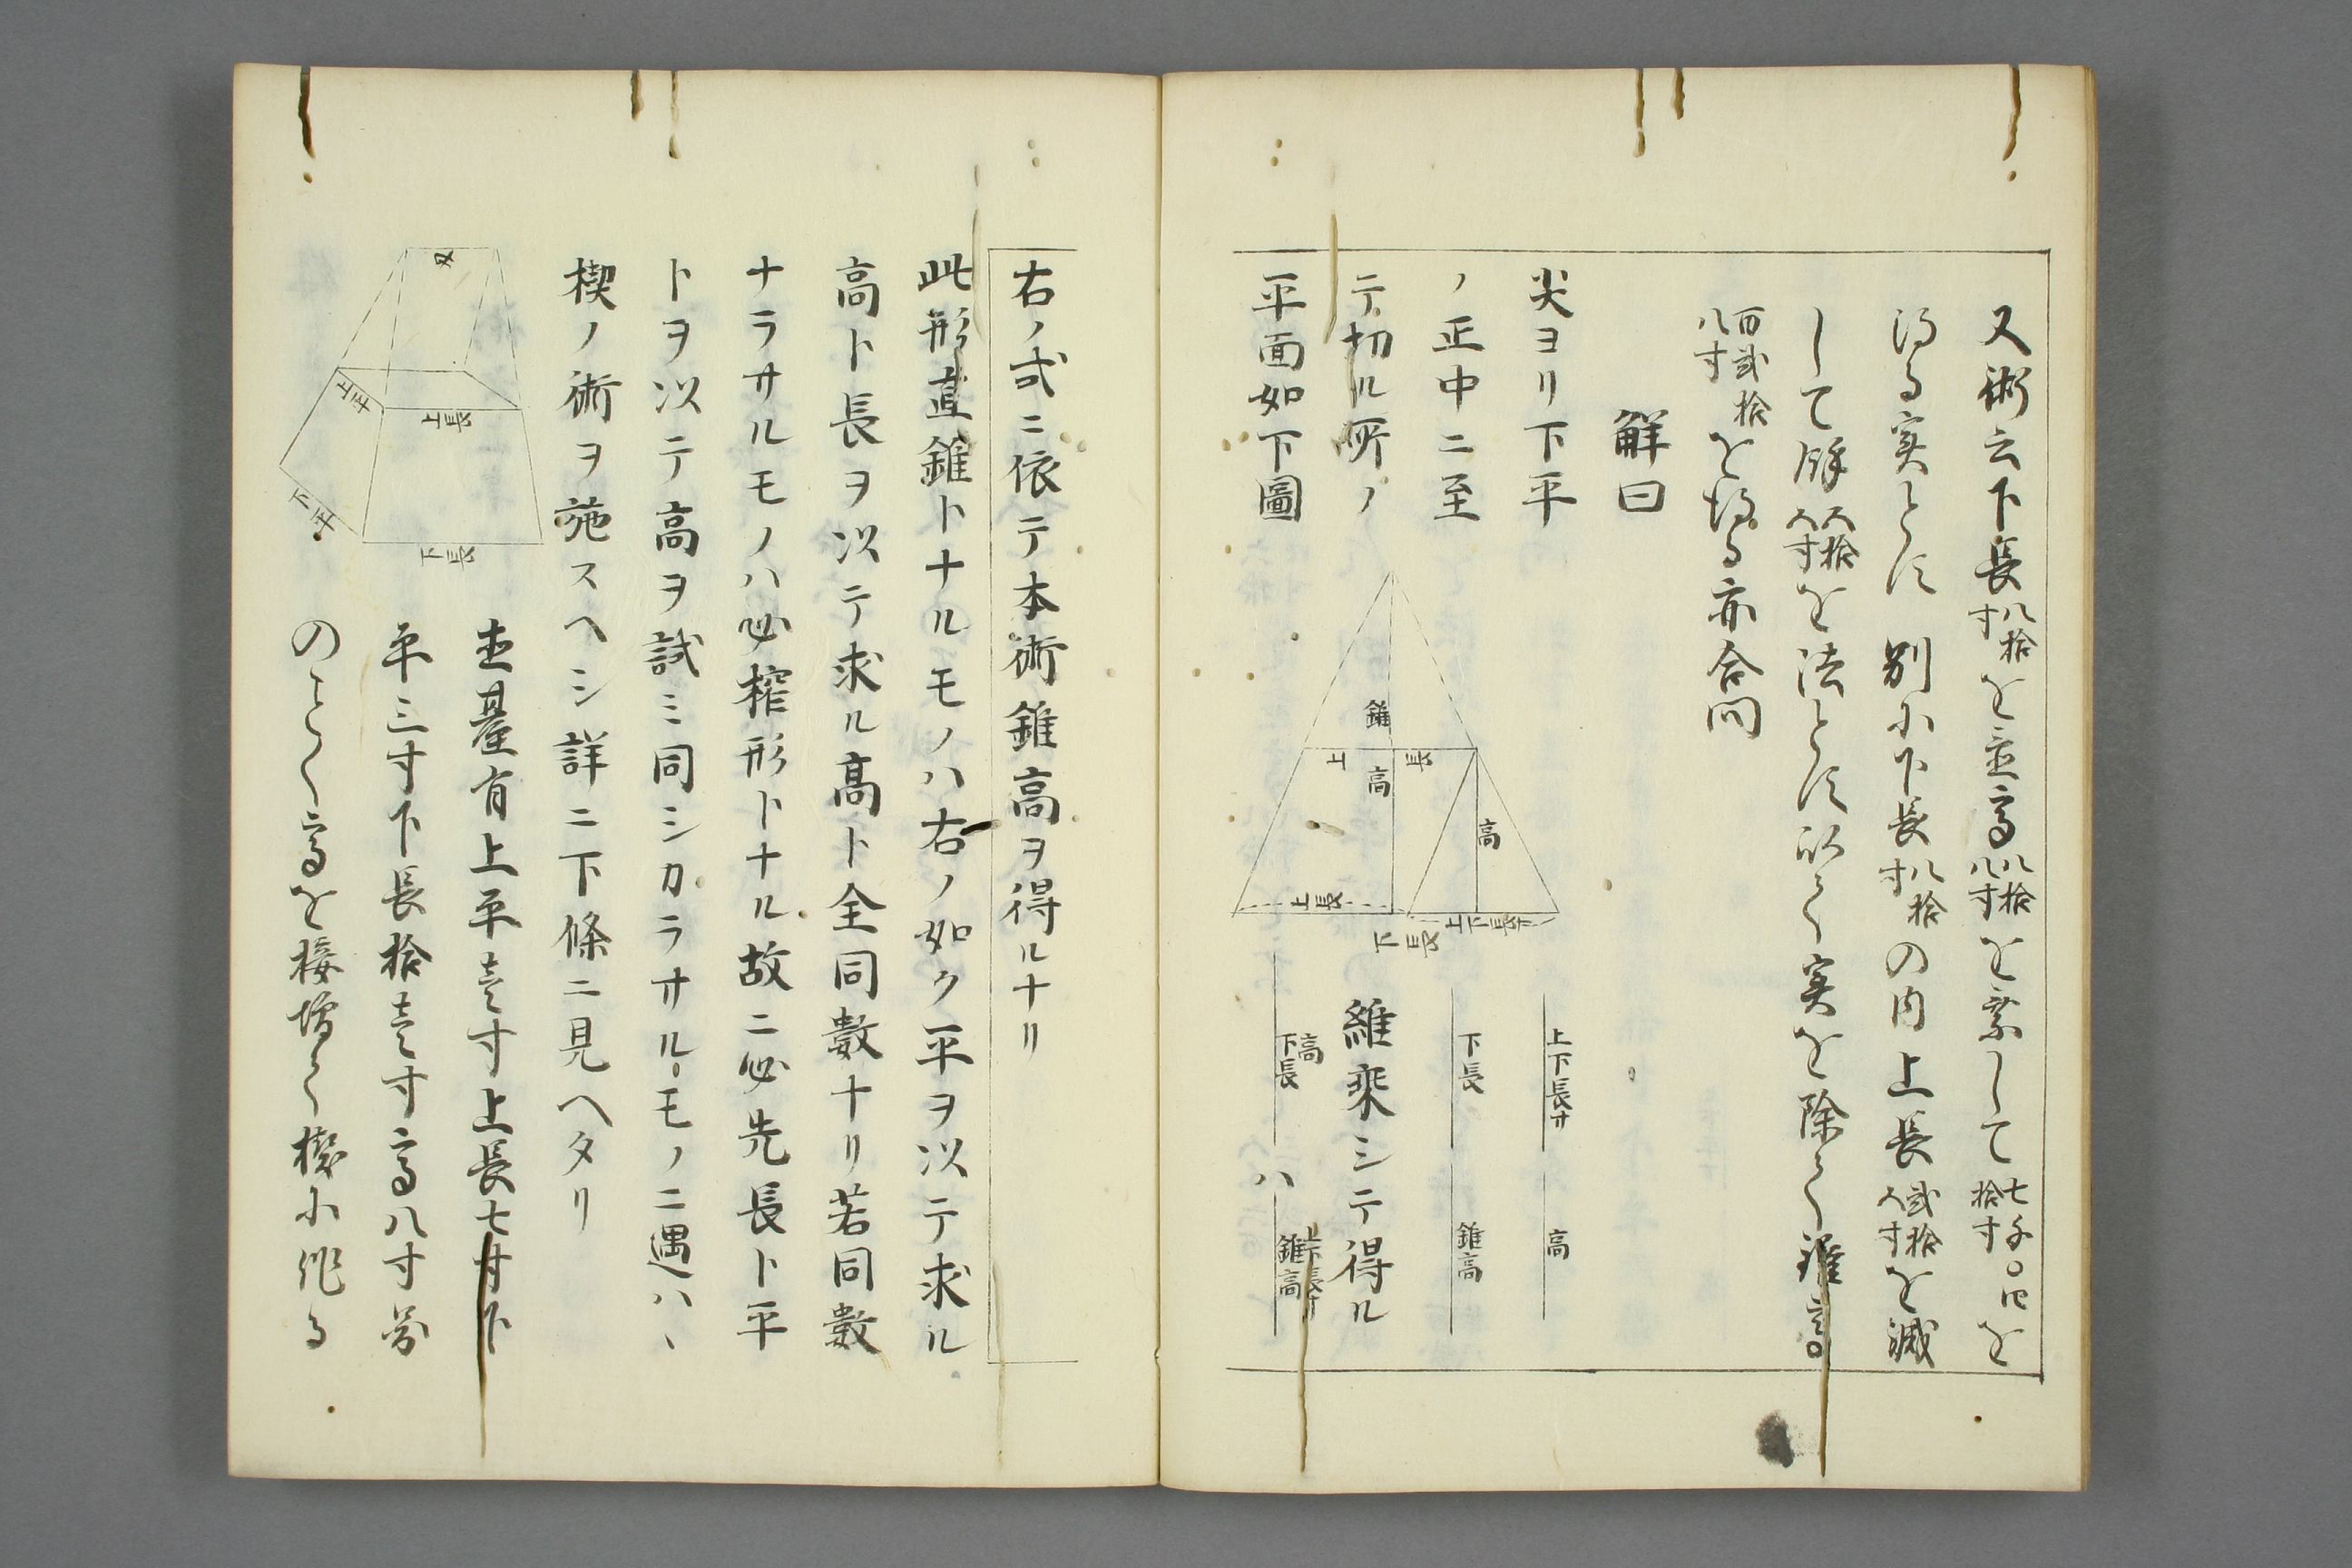 又術云下長八拾寸を置高八拾八寸を乗して七千〇四拾寸を
得る実とす別に下長八拾寸の内上長弐拾五寸を減
して余五拾五寸を法とす以て実を除て錐高
百弐拾八寸を得る亦合問
解曰
尖ヨリ下平
ノ正中ニ至
テ切ル所ノ
平面如下圖
錐
高
上
長
高
上長
下長
上下長サ
上下長サ
高
下長
錐高
維乘シテ得ル
高
下長
ハ
上下長サ
錐高
右ノ式ニ依テ本術錐高ヲ得ルナリ
此形直錐トナルモノハ右ノ如ク平ヲ以テ求ル
高ト長ヲ以テ求ル高ト全同數ナリ若同數
ナラサルモノハ必搾形トナル故ニ必先長ト平
トヲ以テ高ヲ試ミ同シカラサルモノニ遇ハヽ
楔ノ術ヲ施スヘシ詳ニ下條ニ見ヘタリ
叉
上平
上長
下平
下長
直臺有上平壱寸上長七寸下
平三寸下長拾壱寸高八寸労
のことく高を接増て楔に作る